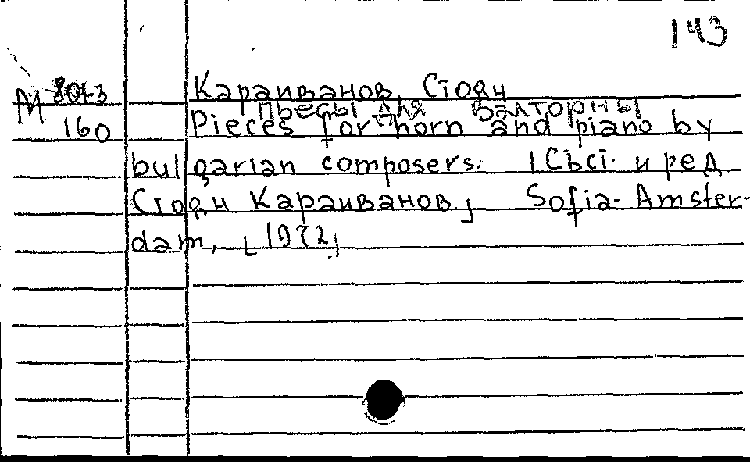 143
М 8013 Караиванов, Стоян
пьесы для валторны
160 Pieces for horn and piano by
bulgarian composers. [Съст. и ред
Стоян Караиванов] Sofia-Amster-
dam, [1972]